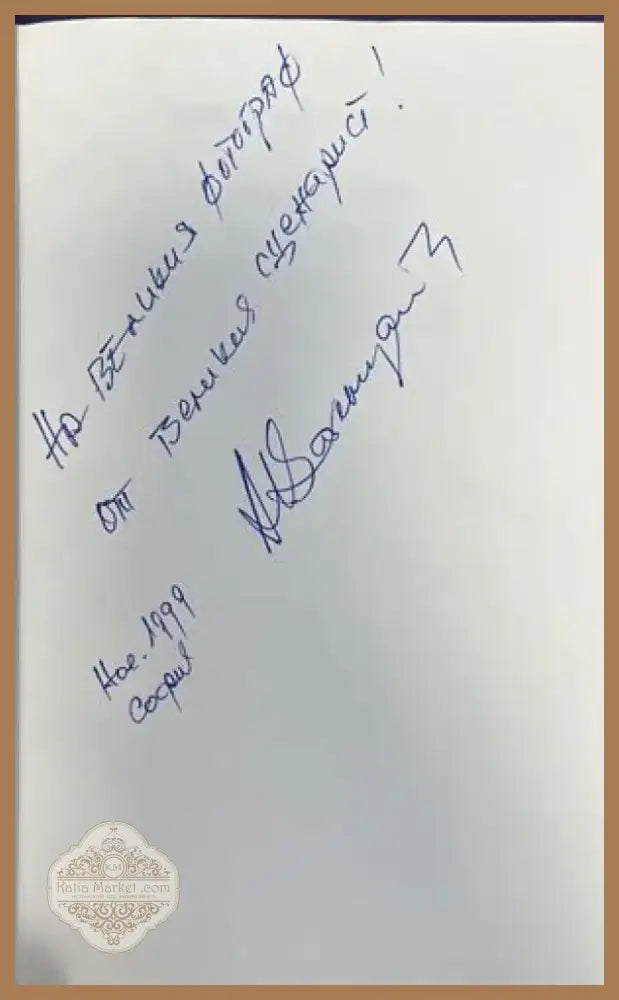 На Великия фотограф
от Великия сценарист!
Ное. 1999
София
KM
Katia Market .com